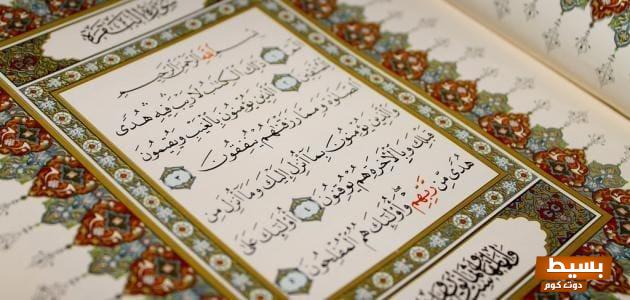 سُورَةُ البَقَرَة
بِسْمِ اللَّهِ الرَّحْمَٰنِ الرَّحِيمِ
الٓمٓ ١ ذَٰلِكَ الْكِتَٰبُ لَا رَيْبَ فِيهِ هُدًى
لِّلْمُتَّقِينَ ٢ الَّذِينَ يُؤْمِنُونَ بِالْغَيْبِ وَيُقِيمُونَ
الصَّلَوٰةَ وَمِمَّا رَزَقْنَٰهُمْ يُنفِقُونَ ٣
وَالَّذِينَ يُؤْمِنُونَ بِمَا أُنزِلَ إِلَيْكَ وَمَا أُنزِلَ مِن
قَبْلِكَ وَبِالْآخِرَةِ هُمْ يُوقِنُونَ ٤ أُولَٰئِكَ عَلَىٰ
هُدًى مِّن رَّبِّهِمْ وَأُولَٰئِكَ هُمُ الْمُفْلِحُونَ ٥
بسيط
دوت كوم